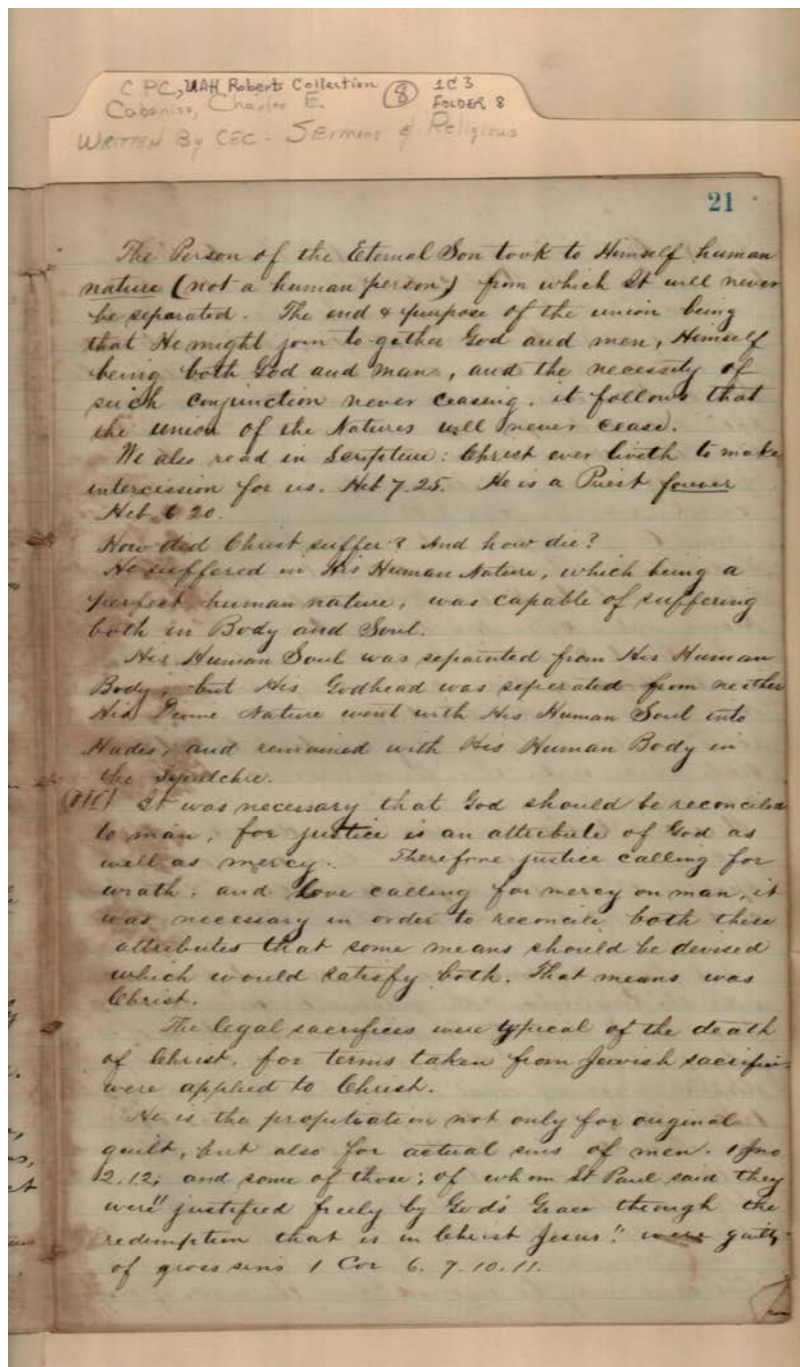 CPC, UAH Roberts Collection (8) 1C3
Cabaniss, Charles E. FOLDER 8
WRITTEN By CEC - SErmons & Religious
21
The Person of the Eternal Son took to Himself human
nature (not a human person) from which It will never
be separated. The end & purpose of the union being
that He might join to-gether God and men, Himself
being both God and man, and the necessity of
such conjunction never ceasing, it follows that
the union of the Natures will never cease.
We also read in Scripture: Christ ever liveth to make
intercession for us. Heb 7.25. He is a Priest forever
Heb 6 20.
How did Christ suffer? And how die?
He suffered in His Human Nature, which being a
perfect human nature, was capable of suffering
both in Body and Soul.
His Human Soul was separated from His Human
Body, but His Godhead was seperated from neither
His Divine Nature went with His Human Soul into
Hades, and remained with His Human Body in
the Sepulchre.
It was necessary that God should be reconciled
to man, for justice is an attribute of God as
well as mercy. Therefore justice calling for
wrath, and Love calling for mercy on man, it
was necessary in order to reconcile both these
attributes that some means should be devised
which would satisfy both. That means was
Christ.
The legal sacrifices were typical of the death
of Christ, for terms taken from Jewish sacrifices
were applied to Christ.
He is the propitiation not only for original
guilt, but also for actual sins of men. 1 Jno
2.12; and some of those; of whom St Paul said they
were "justified freely by God's Grace through the
redemption that is in Christ Jesus" were guilty
of gross sins 1 Cor 6. 9.10.11.